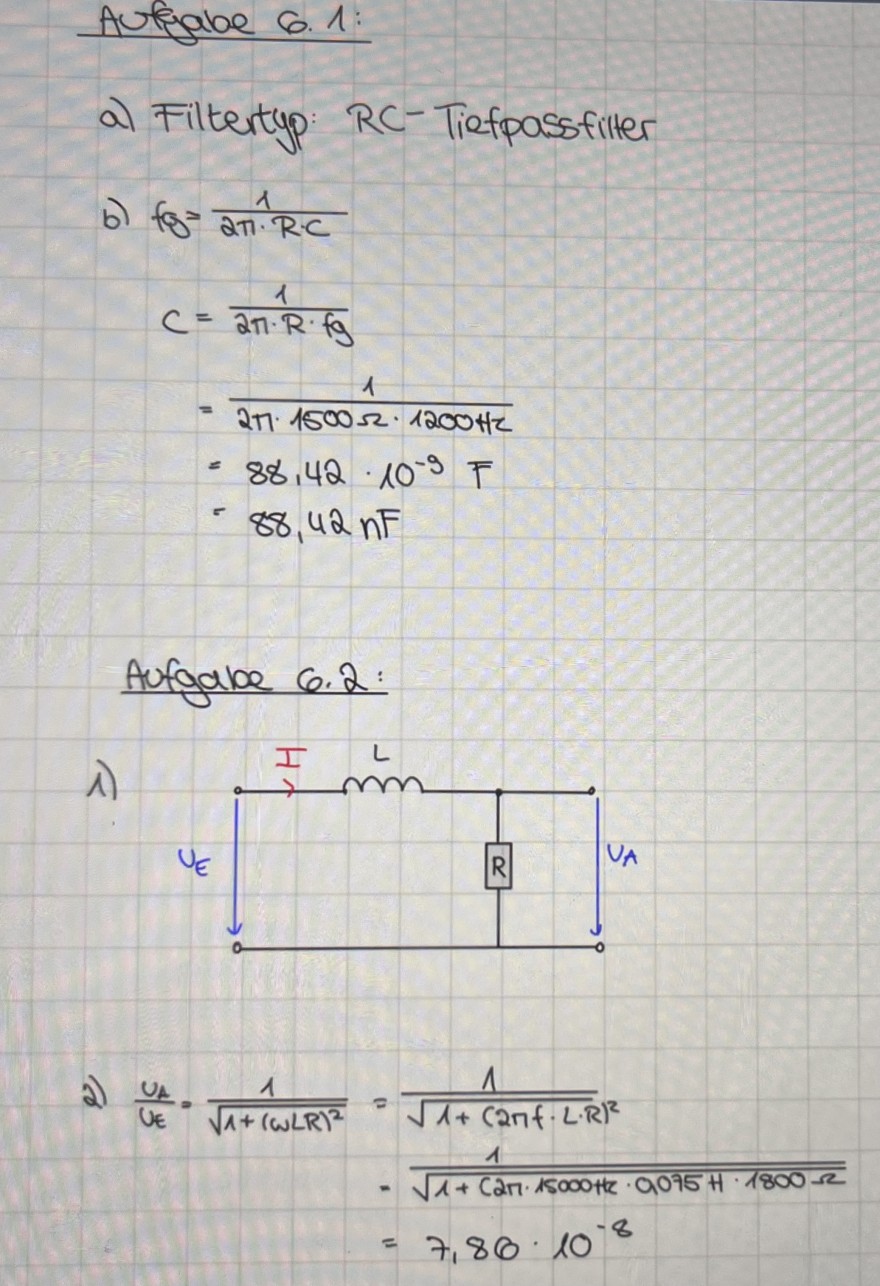 Aufgabe 6.1:
a) Filtertyp: RC-Tiefpassfilter
b) fg = 1 / (2π · R·C)
C = 1 / (2π · R · fg)
= 1 / (2π · 1500Ω · 1200Hz)
= 88,42 · 10⁻⁹ F
= 88,42 nF
Aufgabe 6.2:
1)
I L
UE R UA
2) UA/UE = 1 / √(1+(ωLR)²) = 1 / √(1+(2πf · L·R)²
= 1 / √(1+(2π · 15000Hz · 0,075H · 1800Ω
= 7,86 · 10⁻⁸